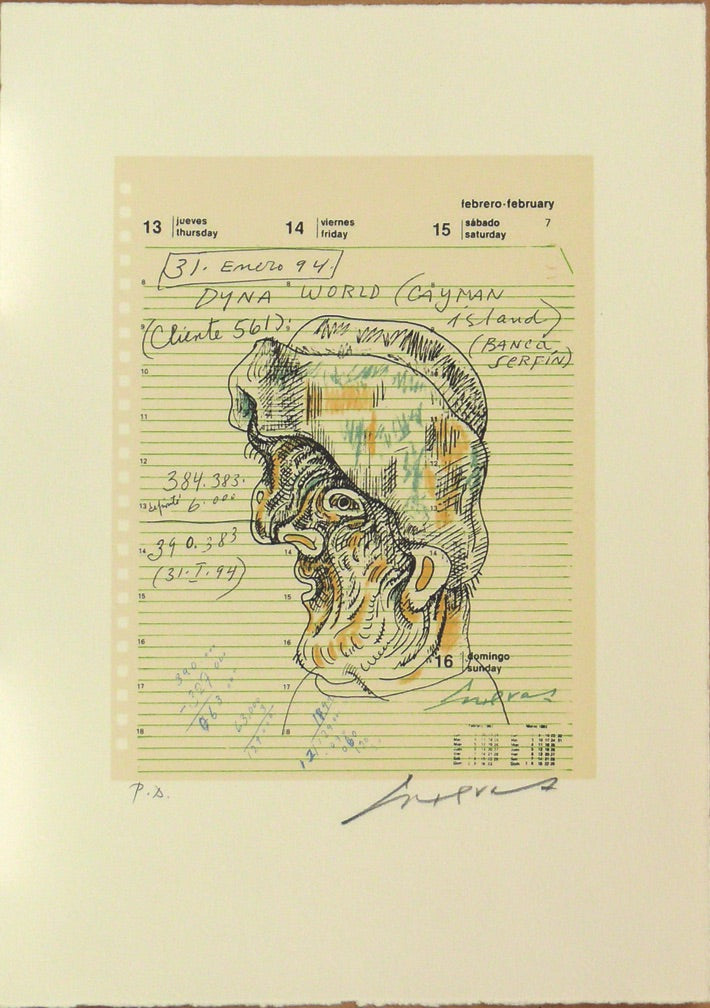 febrero-february
13 jueves thursday 14 viernes friday 15 sábado saturday 7
31. Enero 94.
DYNA WORLD (CAYMAN island)
(Cliente 561).
(BANCA SERFÍN)
8
8
9
9
10
11
12
384.383.
13
6.000
14
390.383
14
(31.I.94)
15
15
16
16
16 domingo sunday
17
17
Cuevas
18
P.A.
Cuevas